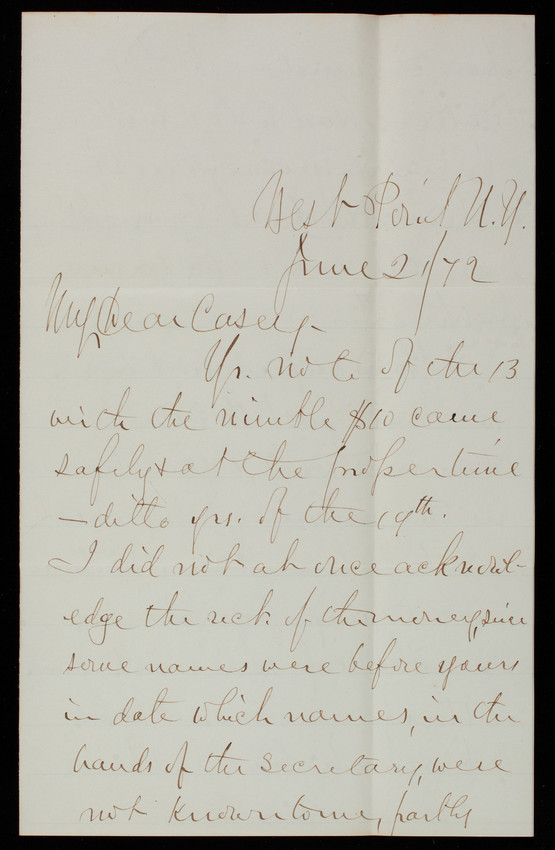 West Point N.Y.
June 21/72
My Dear Casey -
Yr. note of the 13
with the nimble $10 came
safely & at the proper time
- ditto yrs. of the 19th.
I did not at once acknowl-
edge the rect. of the money, since
some names were before yours
in date which names, in the
hands of the Secretary, were
not known to me, partly